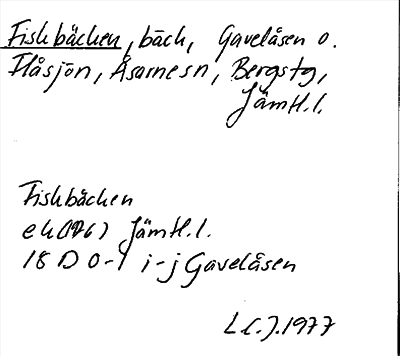 Fiskbäcken, bäck, Gavelåsen o.
Flåsjön, Åsarne sn, Bergs tg,
Jämtl. l.
Fiskbäcken
ek (1976) Jämtl. l.
18 D 0-1 i-j Gavelåsen
L.C.J. 1977